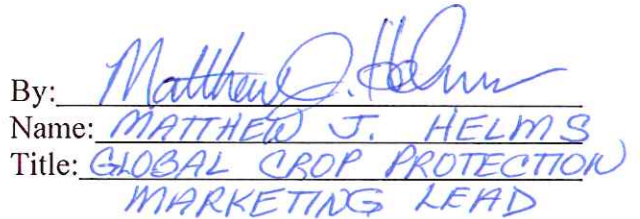 By: Matthew J. Helms
Name: MATTHEW J. HELMS
Title: GLOBAL CROP PROTECTION
MARKETING LEAD